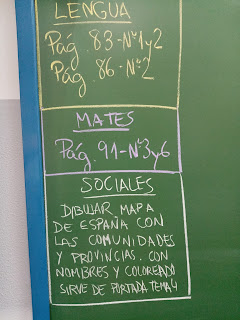 LENGUA
Pág. 83-Nº1y2
Pág. 86-Nº2
MATES
Pág. 91-Nº3y6
SOCIALES
DIBUJAR MAPA
DE ESPAÑA CON
LAS COMUNIDADES
Y PROVINCIAS. CON
NOMBRES Y COLOREADO
SIRVE DE PORTADA TEMA 4